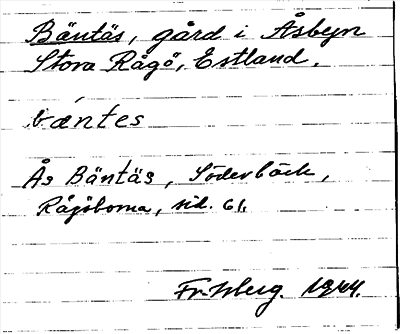 Bäntäs, gård i Åsbyn
Stora Rågö, Estland.
bæ´ntes
Ås Bäntäs, Söderbäck,
Rågöborna, sid. 61.
1944.